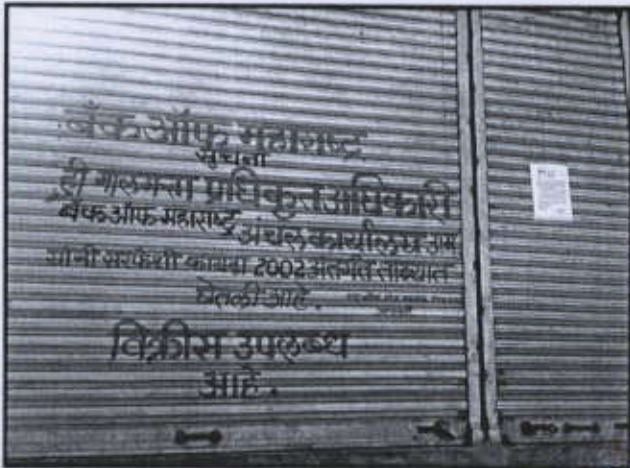 बँक ऑफ महाराष्ट्र
सुचना
ही मालमत्ता प्रधिकृत अधिकारी
बँक ऑफ महाराष्ट्र अंचल कार्यालय
यांनी सरफेसी कायदा 2002 अंतर्गत ताब्यात
घेतली आहे.
विक्रीस उपलब्ध
आहे.